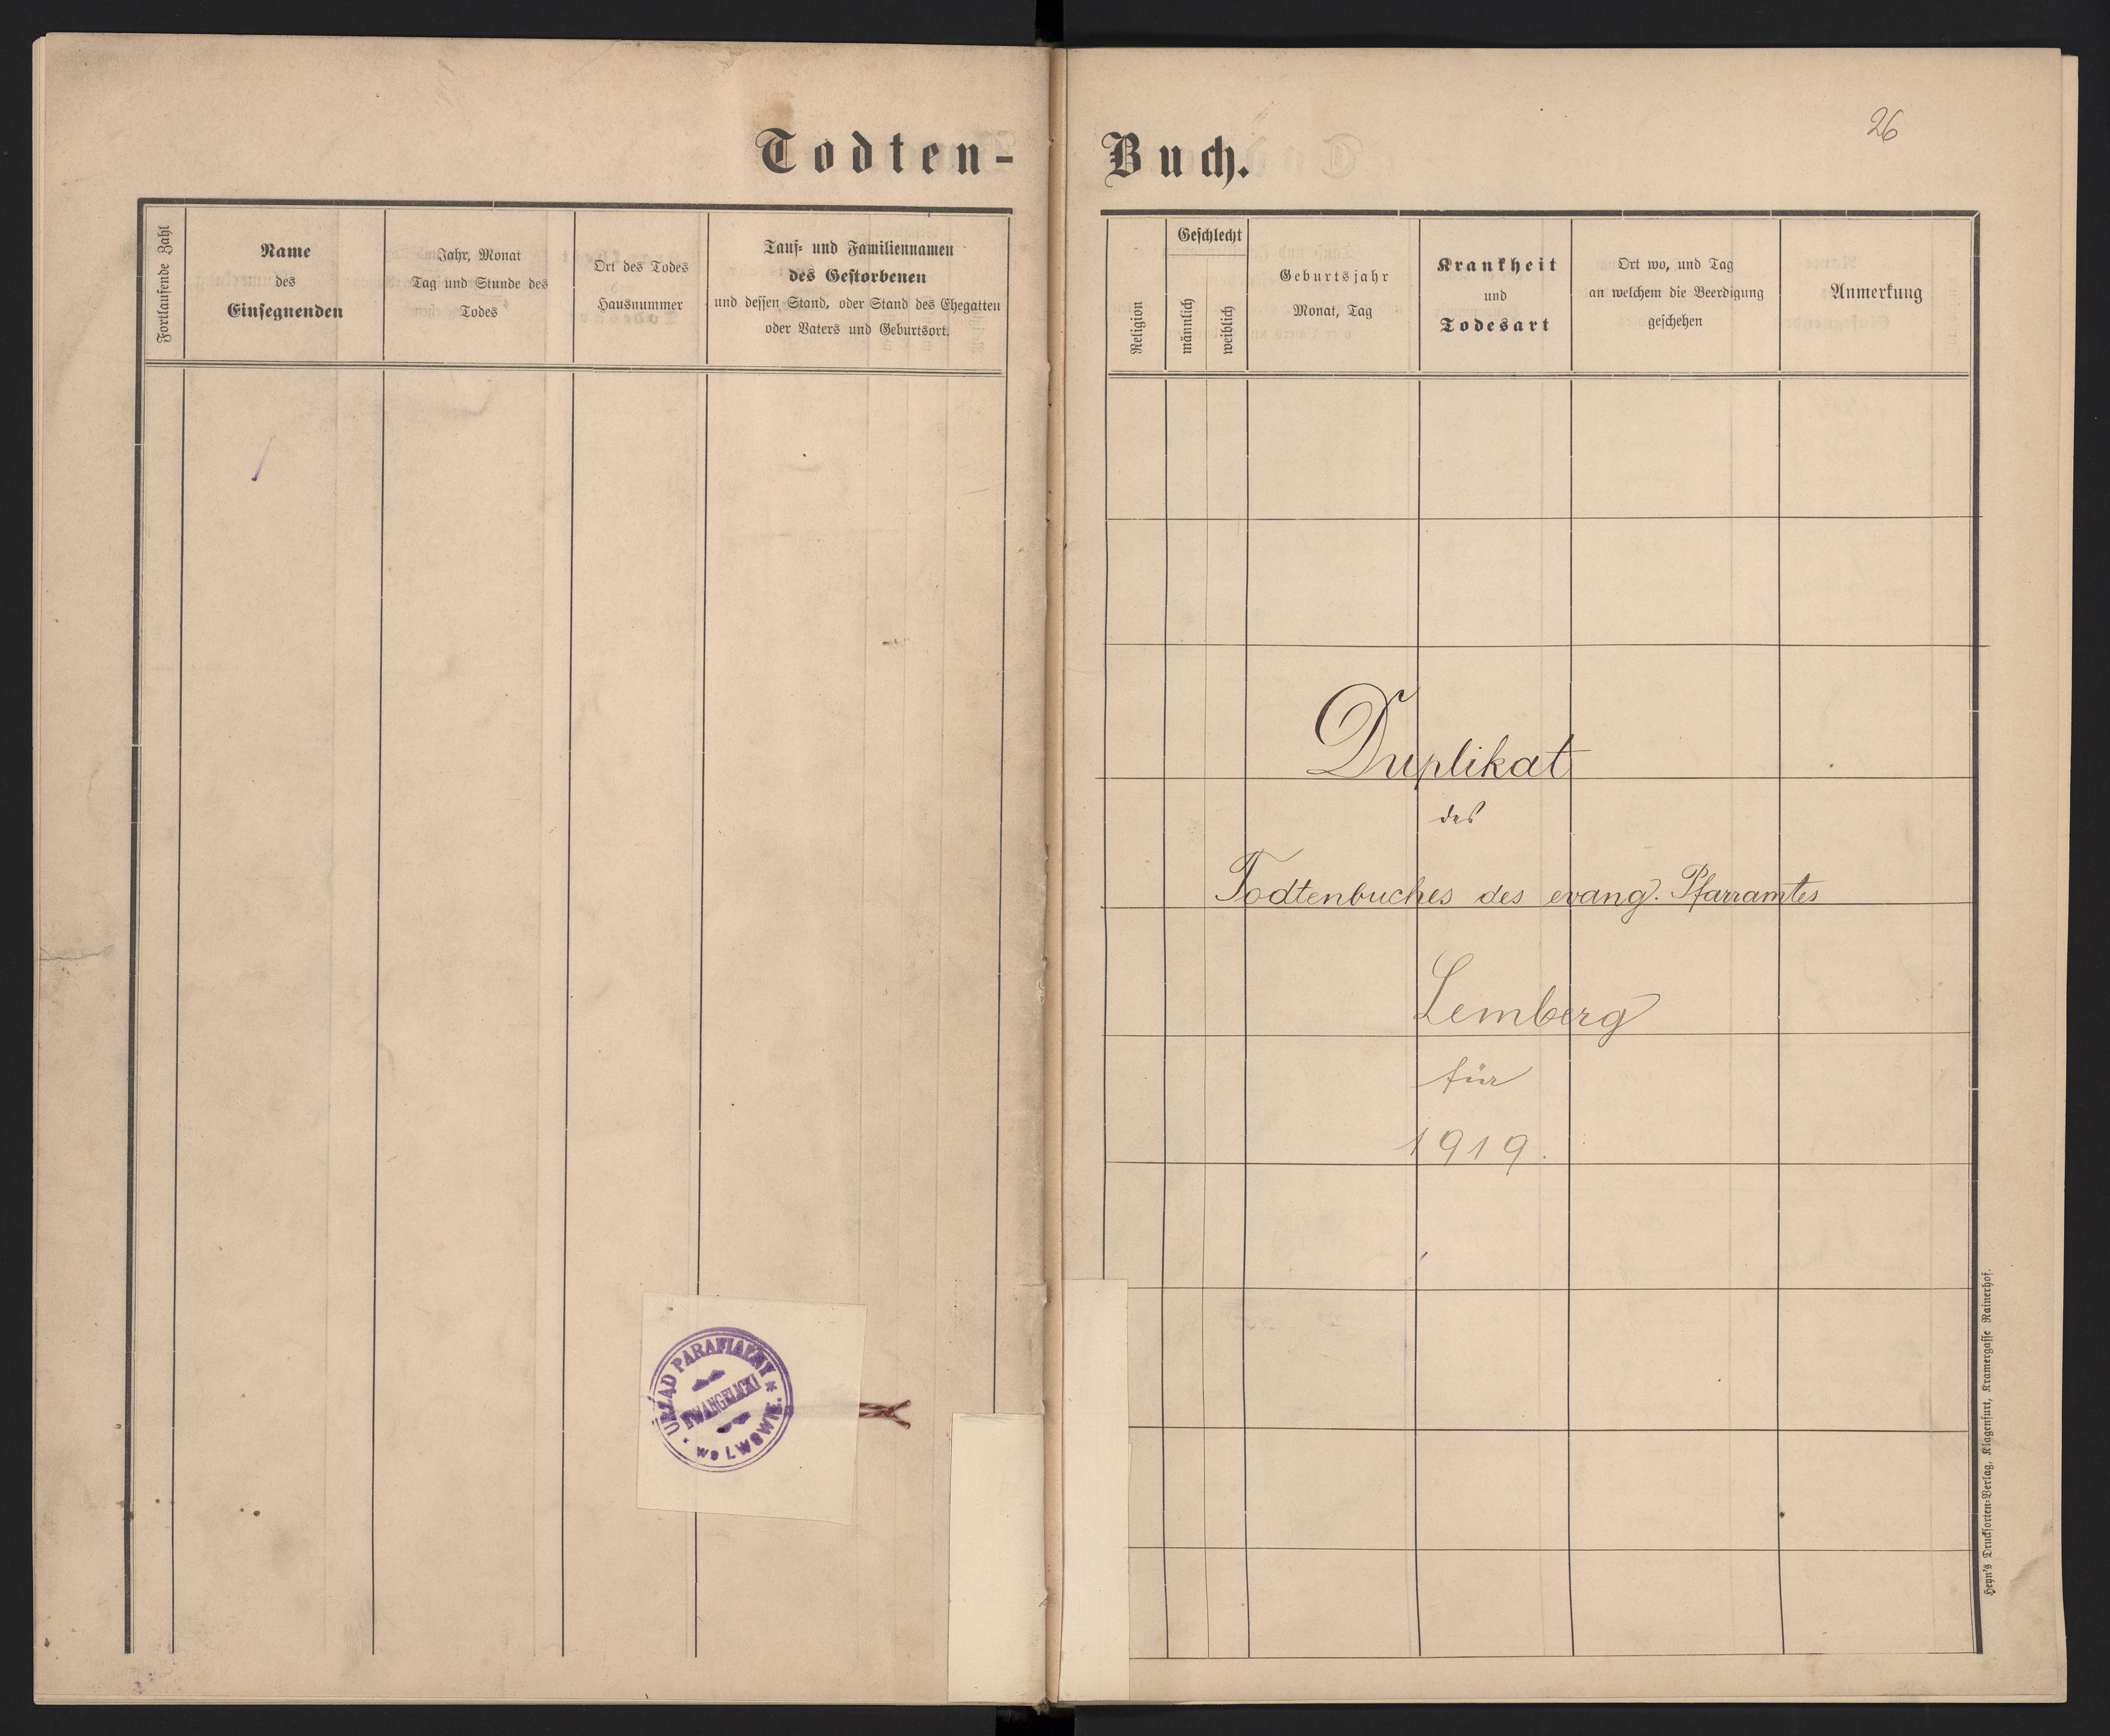 Todten-
Fortlaufende Zahl
Name
des
Einsegnenden
Jahr, Monat
Tag und Stunde des
Todes
Ort des Todes
Hausnummer
Tauf- und Familiennamen
des Gestorbenen
und dessen Stand, oder Stand des Ehegatten
oder Vaters und Geburtsort.
URZĄD PARAFIALNY
EWANGELICKI
we LWOWIE.
26
Buch.
Religion
Geschlecht
männlich
weiblich
Geburtsjahr
Monat, Tag
Krankheit
und
Todesart
Ort wo, und Tag
an welchem die Beerdigung
geschehen
Anmerkung
Duplikat
des
Todtenbuches des evang. Pfarramtes
Lemberg
für
1919.
Heyn's Drucksorten-Verlag, Klagenfurt, Kramergasse Rainerhof.